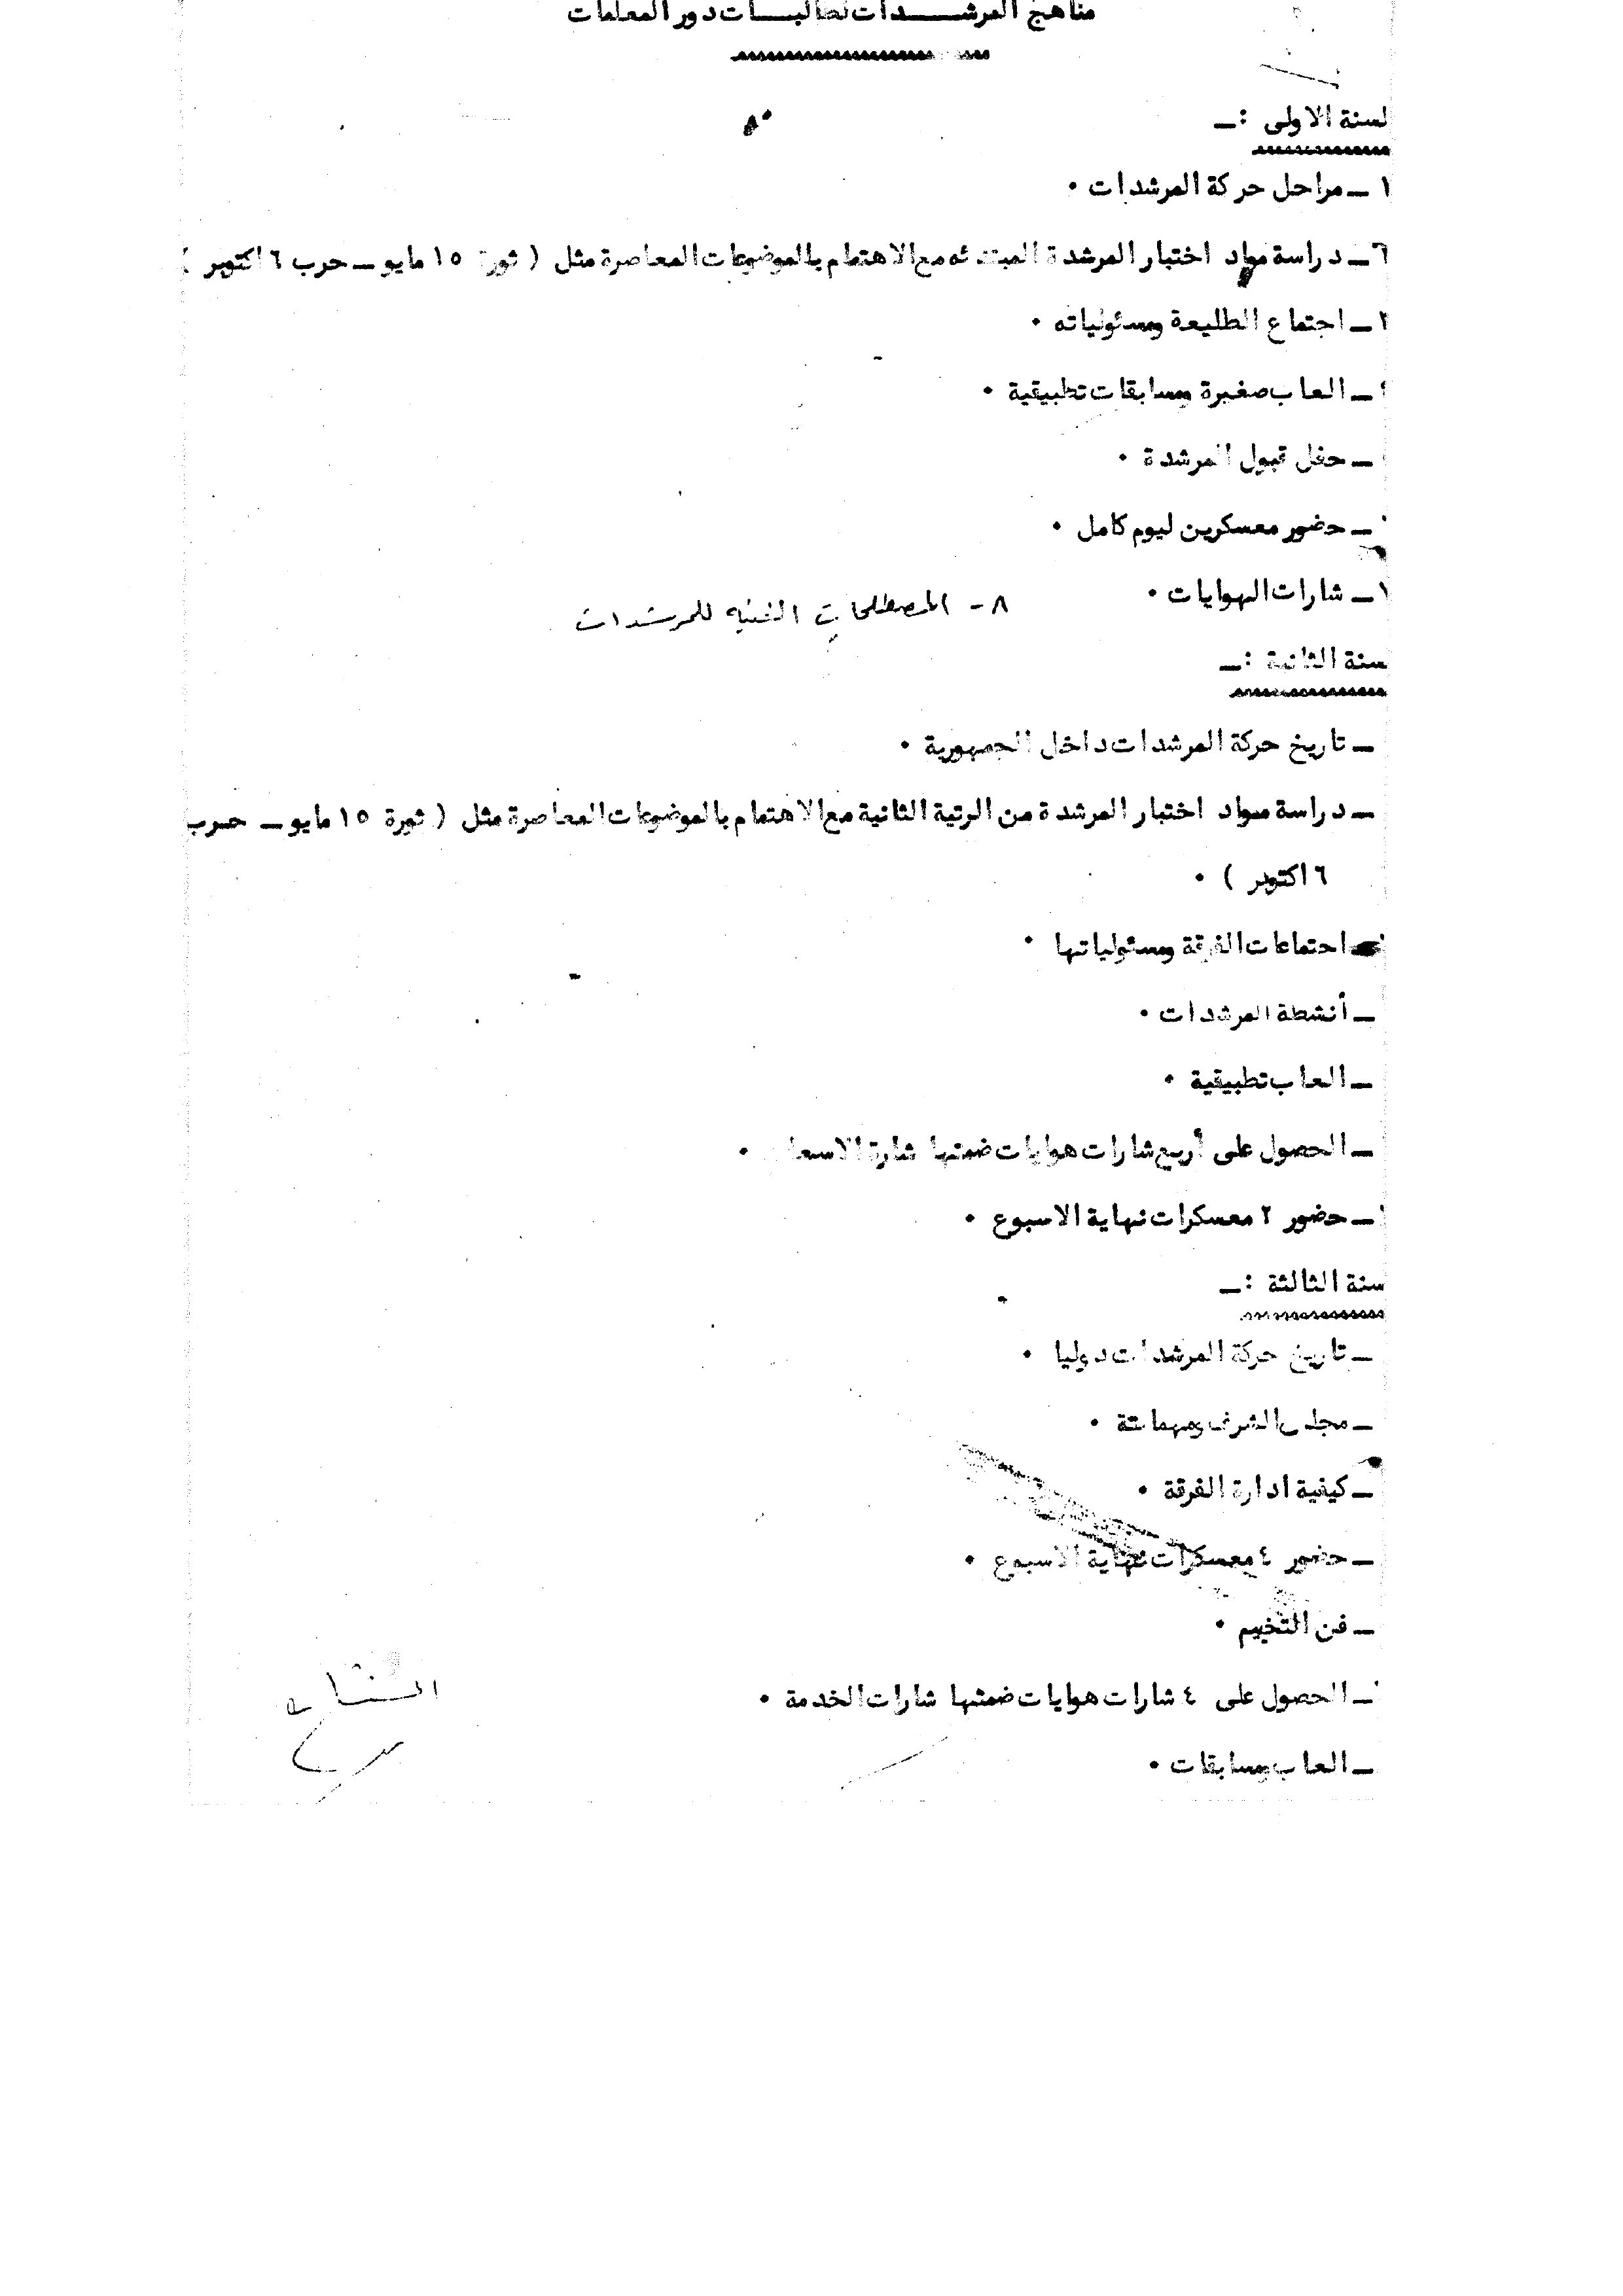 مناهج المرشـــدات لطالبـــات دور المعلمات
لسنة الاولى :ـ
١ ـ مراحل حركة المرشدات ٠
٦ ـ دراسة مواد اختبار المرشدة المبتدئه مع الاهتمام بالموضوعات المعاصرة مثل ( ثورة ١٥ مايو ـ حرب ٦ اكتوبر )
ـ اجتماع الطليعة ومسئولياته ٠
ـ العاب صغيرة ومسابقات تطبيقية ٠
ـ حفل قبول المرشدة ٠
ـ حضور معسكرين ليوم كامل ٠
ـ شارات الهوايات ٠
٨ - المصطلحات الفنيه للمرشدات
لسنة الثانية :ـ
ـ تاريخ حركة المرشدات داخل الجمهورية ٠
ـ دراسة مواد اختبار المرشدة من الرتبة الثانية مع الاهتمام بالموضوعات المعاصرة مثل ( ثورة ١٥ مايو ـ حرب
٦ اكتوبر ) ٠
اجتماعات الفرقة ومسئولياتها ٠
ـ أنشطة المرشدات ٠
ـ العاب تطبيقية ٠
ـ الحصول على أربع شارات هوايات ضمنها شارة الاسعاف ٠
ـ حضور ٢ معسكرات نهاية الاسبوع ٠
سنة الثالثة :ـ
ـ تاريخ حركة المرشدات دوليا ٠
ـ مجلس الشرف ومهامتة ٠
ـ كيفية ادارة الفرقة ٠
ـ حضور ٤ معسكرات نهاية الاسبوع ٠
ـ فن التخييم ٠
ـ الحصول على ٤ شارات هوايات ضمنها شارات الخدمة ٠
ـ العاب ومسابقات ٠